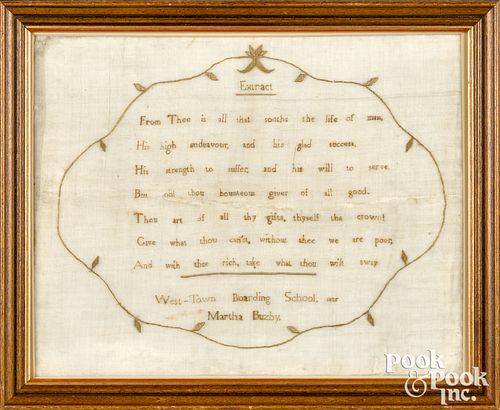 Extract
From Thee is all that sooths the life of man,
His high endeavour, and his glad success,
His strength to suffer, and his will to serve.
But oh! thou bounteous giver of all good.
Thou art of all thy gifts, thyself the crown!
Give what thou canst, without thee we are poor,
And with thee rich, take what thou wilt away.
West-Town Boarding School,
Martha Buzby.
POOK
& POOK
INC.